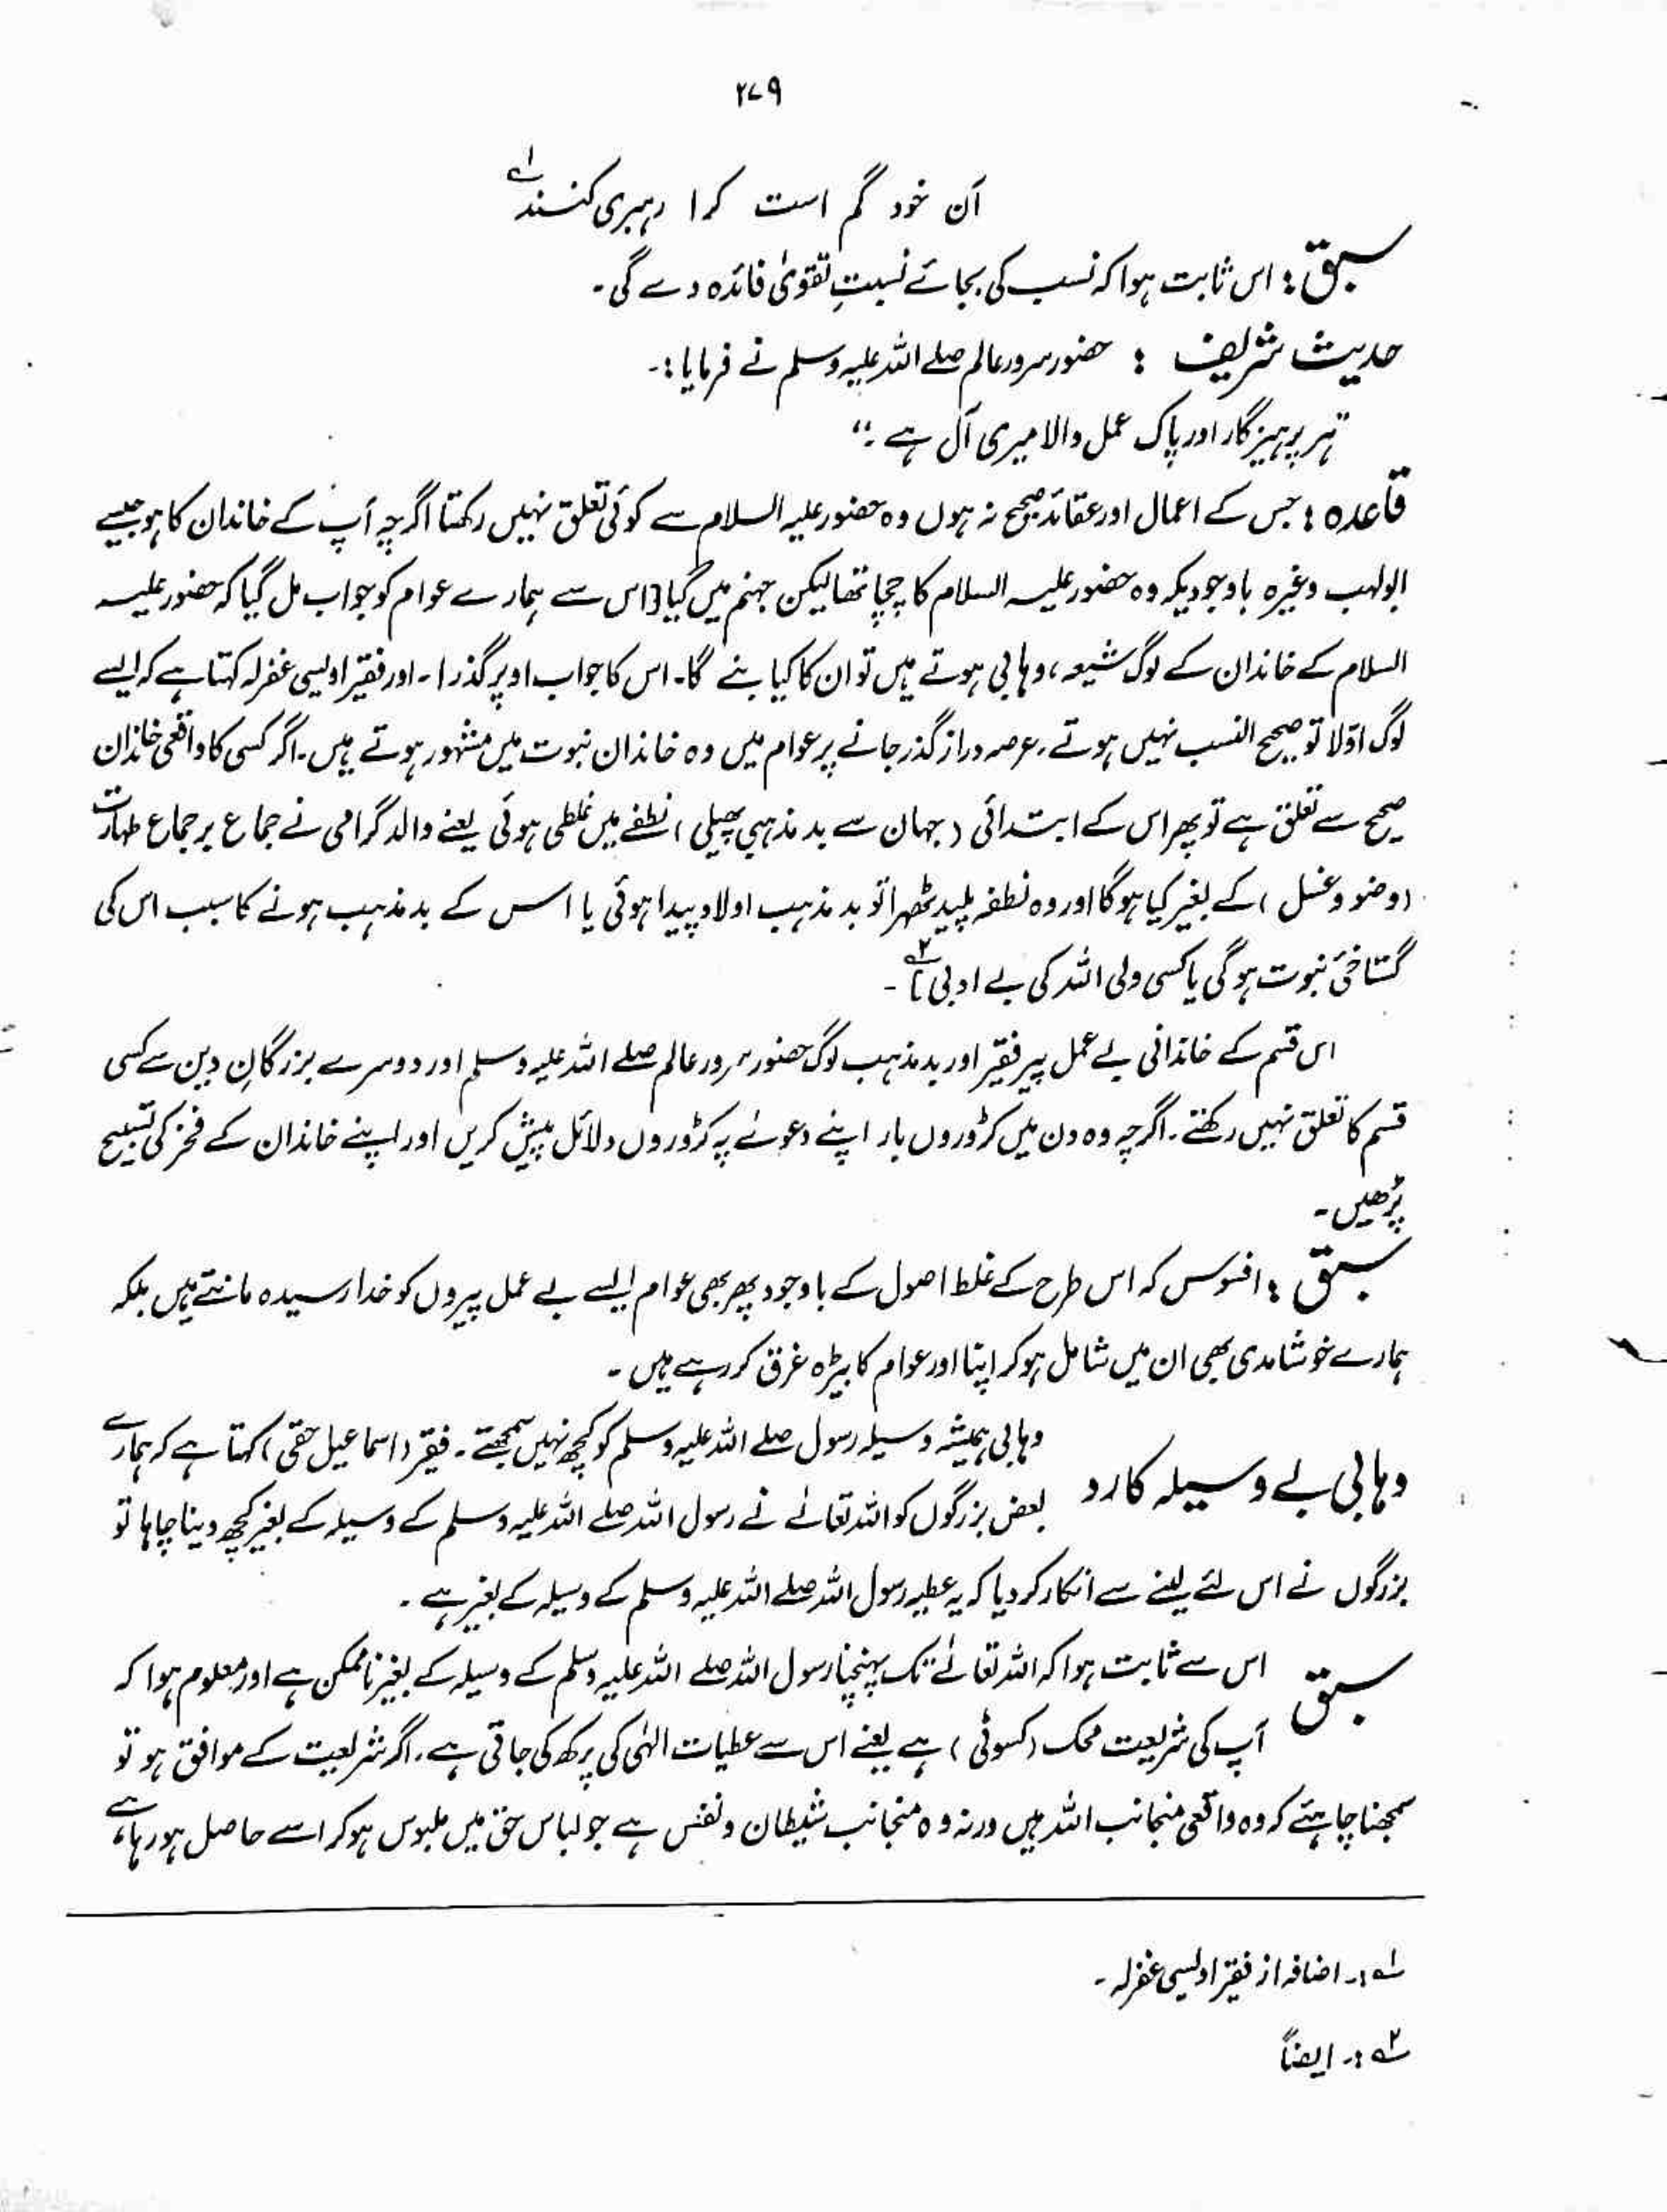 ۲۷۹
آن خود گم است کرا رہبری کنند ۱؎
سبق : اس ثابت ہوا کہ نسب کی بجائے نسبتِ تقویٰ فائدہ دے گی۔
حدیث شریف : حضور سرور عالم صلے اللہ علیہ وسلم نے فرمایا :۔
"ہر پرہیزگار اور پاک عمل والا میری آل ہے۔"
قاعدہ : جس کے اعمال اور عقائد صحیح نہ ہوں وہ حضور علیہ السلام سے کوئی تعلق نہیں رکھتا اگرچہ آپ کے خاندان کا ہو جیسے
ابولہب وغیرہ باوجودیکہ وہ حضور علیہ السلام کا چچا تھا لیکن جہنم میں گیا [اس سے ہمارے عوام کو جواب مل گیا کہ حضور علیہ
السلام کے خاندان کے لوگ شیعہ، وہابی ہوتے ہیں تو ان کا کیا بنے گا۔ اس کا جواب اوپر گذرا۔ اور فقیر اویسی غفرلہ کہتا ہے کہ ایسے
لوگ اوّلا تو صحیح النسب نہیں ہوتے۔ عرصہ دراز گذر جانے پر عوام میں وہ خاندان نبوت میں مشہور ہوتے ہیں۔ اگر کسی کا واقعی خاندان
صحیح سے تعلق ہے تو پھر اس کے ابتدائی (جہان سے بد مذہبی پھیلی) نطفے میں غلطی ہوئی یعنے والد گرامی نے جماع بر جماع طہارت
(وضو وغسل) کے بغیر کیا ہوگا اور وہ نطفہ پلید ٹھہرا تو بد مذہب اولاد پیدا ہوئی یا اس کے بد مذہب ہونے کا سبب اس کی
گستاخیٔ نبوت ہوگی یا کسی ولی اللہ کی بے ادبی] ۲؎۔
اس قسم کے خاندانی بے عمل پیر فقیر اور بد مذہب لوگ حضور سرور عالم صلے اللہ علیہ وسلم اور دوسرے بزرگانِ دین سے کسی
قسم کا تعلق نہیں رکھتے۔ اگرچہ وہ دن میں کڑوروں بار اپنے دعوئے پہ کڑوروں دلائل پیش کریں اور اپنے خاندان کے فخر کی تسبیح
پڑھیں۔
سبق : افسوس کہ اس طرح کے غلط اصول کے باوجود پھر بھی عوام ایسے بے عمل پیروں کو خدا رسیدہ مانتے ہیں بلکہ
ہمارے خوشامدی بھی ان میں شامل ہوکر اپنا اور عوام کا بیڑہ غرق کر رہے ہیں۔
وہابی بے وسیلہ کا رد
وہابی ہمیشہ وسیلہ رسول صلے اللہ علیہ وسلم کو کچھ نہیں سمجھتے۔ فقیر (اسماعیل حقی) کہتا ہے کہ ہمارے
بعض بزرگوں کو اللہ تعالےٰ نے رسول اللہ صلے اللہ علیہ وسلم کے وسیلہ کے بغیر کچھ دینا چاہا تو
بزرگوں نے اس لئے لینے سے انکار کر دیا کہ یہ عطیہ رسول اللہ صلے اللہ علیہ وسلم کے وسیلہ کے بغیر ہے۔
سبق اس سے ثابت ہوا کہ اللہ تعالےٰ تک پہنچنا رسول اللہ صلے اللہ علیہ وسلم کے وسیلہ کے بغیر ناممکن ہے اور معلوم ہوا کہ
آپ کی شریعت محک (کسوٹی) ہے یعنے اس سے عطیات الہٰی کی پرکھ کی جاتی ہے۔ اگر شریعت کے موافق ہو تو
سمجھنا چاہئے کہ وہ واقعی منجانب اللہ ہیں ورنہ وہ منجانب شیطان ونفس ہے جو لباس حق میں ملبوس ہوکر اسے حاصل ہو رہا ہے
۱؎ :۔ اضافہ از فقیر اویسی غفرلہ۔
۲؎ :۔ ایضاً